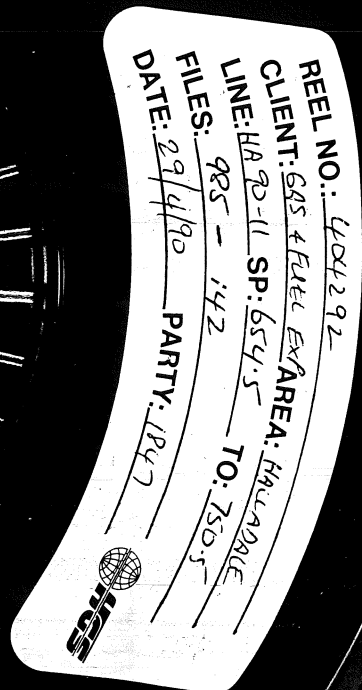 REEL NO.: 404292
CLIENT: GAS & FUEL EXP. AREA: HALLADALE
LINE: HA 90-11 SP: 654.5 TO: 750.5
FILES: 985 - 142
DATE: 29/4/90 PARTY: 1847
HGS